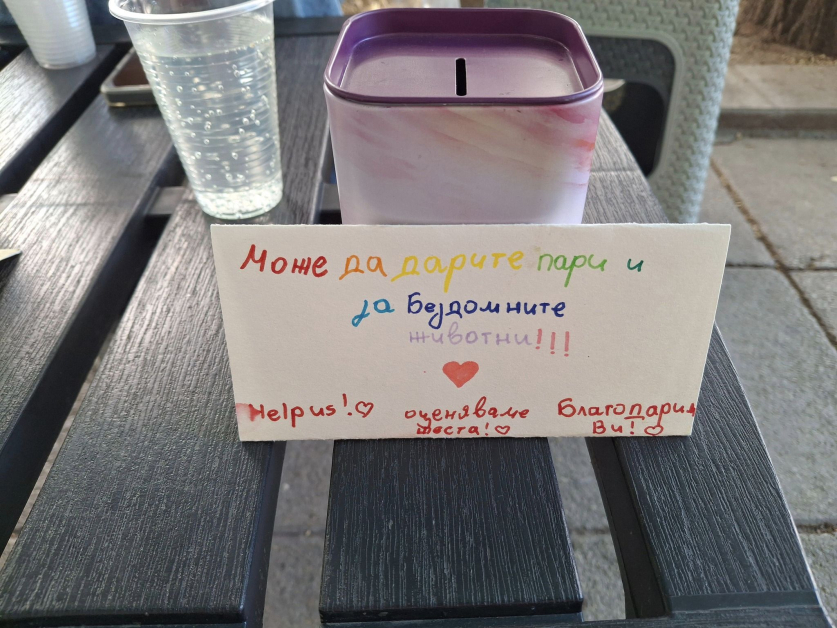 Може да дарите пари и
за Бездомните
животни!!!
Help us!♡
оценяваме
жеста!♡
Благодарим
Ви!♡